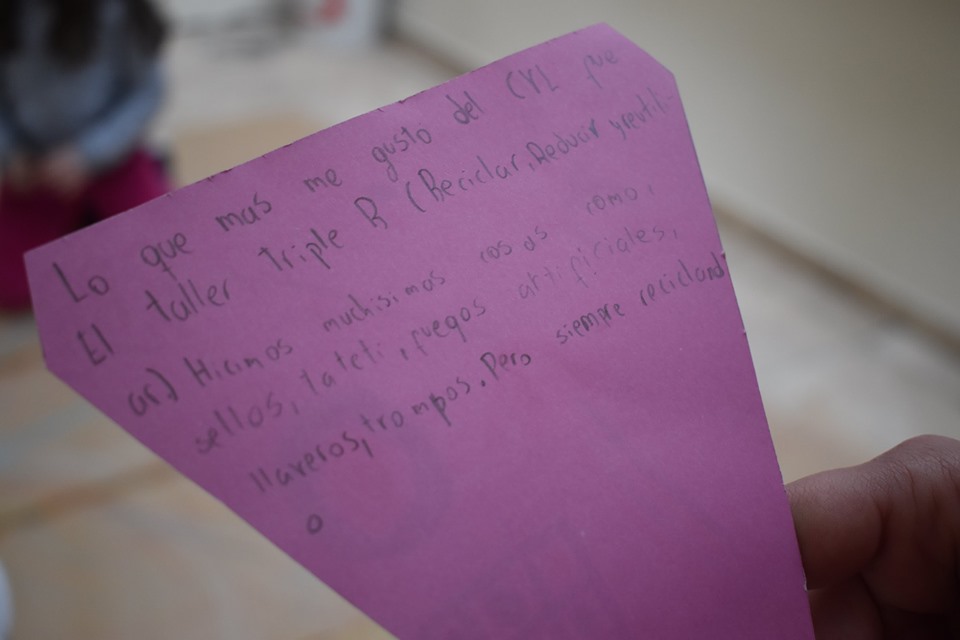 Lo que mas me gusto del CVL fue
El taller triple R (Reciclar, Reducir y reutili-
ar) Hicimos muchisimos cosas como,
sellos, tateti, fuegos artificiales,
llaveros, trompos. Pero siempre recicland
o